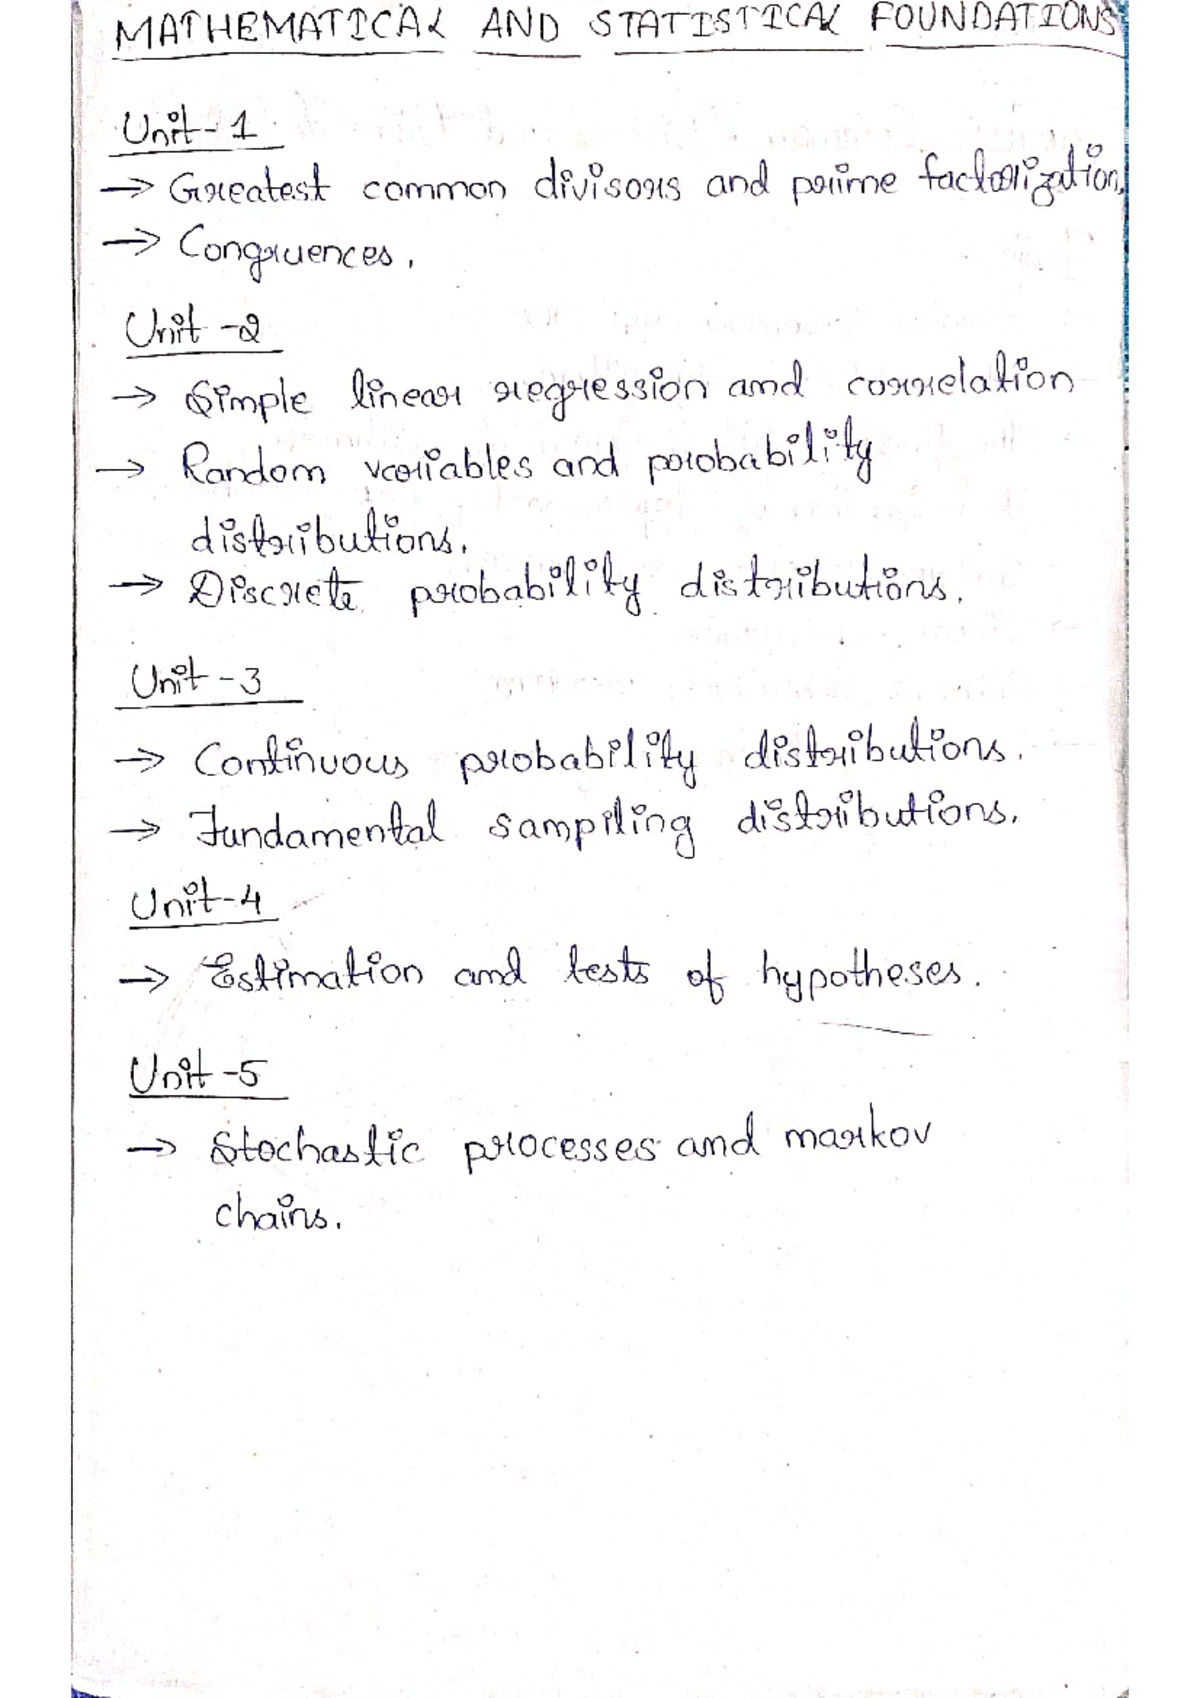 MATHEMATICAL AND STATISTICAL FOUNDATIONS
Unit-1
→ Greatest common divisors and prime factorization.
→ Congruences.
Unit-2
→ Simple linear regression and correlation
→ Random variables and probability
distributions.
→ Discrete probability distributions.
Unit-3
→ Continuous probability distributions.
→ Fundamental sampling distributions.
Unit-4
→ Estimation and tests of hypotheses.
Unit-5
→ Stochastic processes and markov
chains.